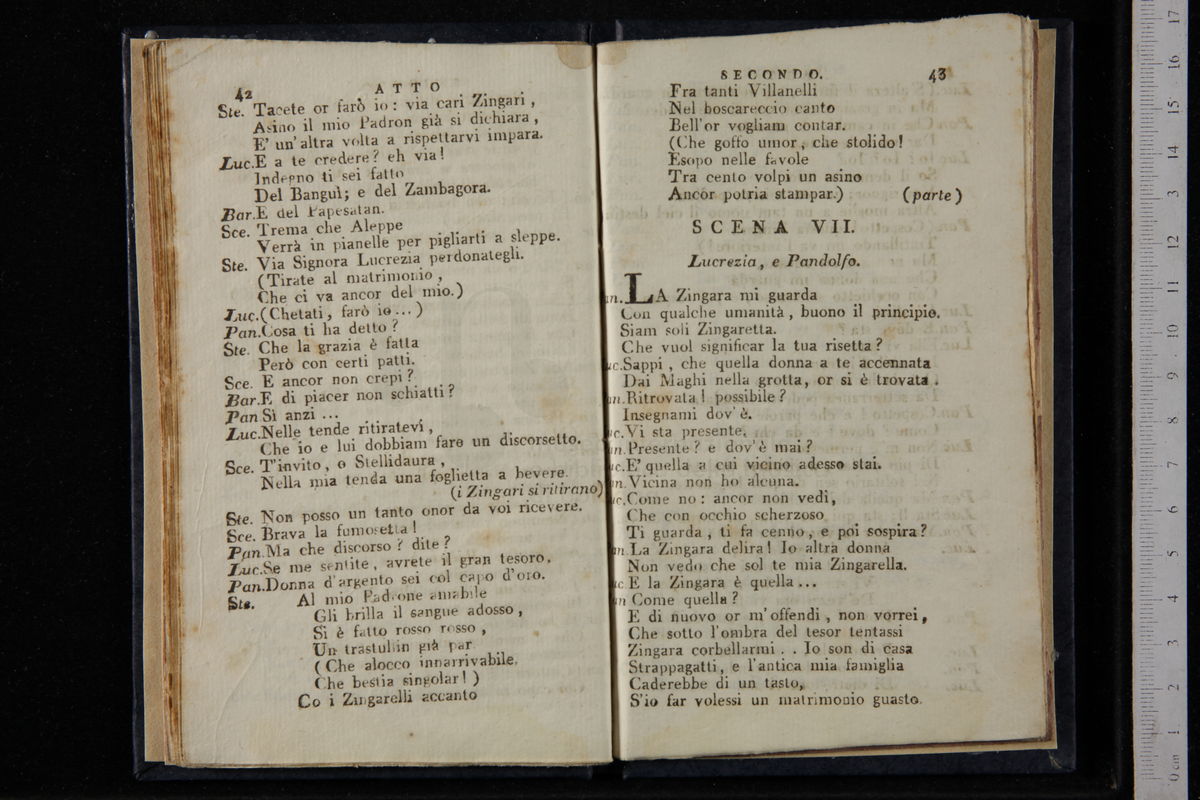 42 ATTO
Ste. Tacete or farò io : via cari Zingari ,
Asino il mio Padron già si dichiara ,
E' un' altra volta a rispettarvi impara.
Luc. E a te credere ? eh via !
Indegno ti sei fatto
Del Banguì; e del Zambagora.
Bar. E del Papesatan.
Sce. Trema che Aleppe
Verrà in pianelle per pigliarti a sleppe.
Ste. Via Signora Lucrezia perdonategli.
(Tirate al matrimonio ,
Che ci va ancor del mio.)
Luc. (Chetati, farò io ... )
Pan. Cosa ti ha detto ?
Ste. Che la grazia è fatta
Però con certi patti.
Sce. E ancor non crepi ?
Bar. E di piacer non schiatti ?
Pan Sì anzi ...
Luc. Nelle tende ritiratevi ,
Che io e lui dobbiam fare un discorsetto.
Sce. T'invito , o Stellidaura ,
Nella mia tenda una foglietta a bevere.
(i Zingari si ritirano)
Ste. Non posso un tanto onor da voi ricevere.
Sce. Brava la fumosetta !
Pan. Ma che discorso ? dite ?
Luc. Se me sentite , avrete il gran tesoro.
Pan. Donna d'argento sei col capo d'oro.
Ste. Al mio Padrone amabile
Gli brilla il sangue adosso ,
Si è fatto rosso rosso ,
Un trastullin già par
( Che alocco innarrivabile.
Che bestia singolar ! )
Co i Zingarelli accanto
SECONDO. 43
Fra tanti Villanelli
Nel boscareccio canto
Bell'or vogliam contar.
(Che goffo umor, che stolido !
Esopo nelle favole
Tra cento volpi un asino
Ancor potria stampar.) (parte)
SCENA VII.
Lucrezia, e Pandolfo.
an. LA Zingara mi guarda
Con qualche umanità , buono il principio.
Siam soli Zingaretta.
Che vuol significar la tua risetta ?
uc. Sappi , che quella donna a te accennata
Dai Maghi nella grotta, or si è trovata .
an. Ritrovata ! possibile ?
Insegnami dov' è.
uc. Vi sta presente.
an. Presente ? e dov'è mai ?
uc. E' quella a cui vicino adesso stai.
an. Vicina non ho alcuna.
uc. Come no : ancor non vedi,
Che con occhio scherzoso
Ti guarda , ti fa cenno , e poi sospira ?
an. La Zingara delira ! Io altra donna
Non vedo che sol te mia Zingarella.
uc. E la Zingara è quella ...
an Come quella ?
E di nuovo or m'offendi , non vorrei ,
Che sotto l'ombra del tesor tentassi
Zingara corbellarmi . . Io son di casa
Strappagatti, e l'antica mia famiglia
Caderebbe di un tasto,
S'io far volessi un matrimonio guasto.